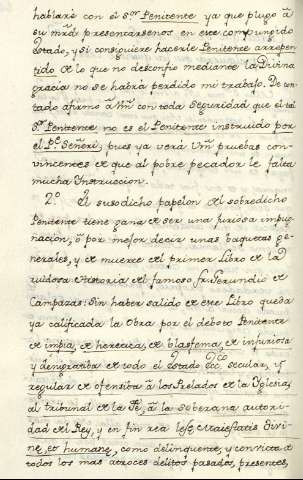 hablaré con el S.or Penitente ya que plugo à
su mrd presentarsenos en este compungido
estado, y si consiguiere hacerle Penitente arrepen-
tido de lo que no desconfio mediante la Divina
gracia no se habra perdido mi trabajo. De con-
tado afirmo à Vm con toda seguridad que el tal
S.or Penitente no es el Penitente instruido por
el P.e Señeri, pues ya verà Vm pruebas con-
vincentes de que al pobre pecador le falta
mucha Instruccion.
2.o El susodicho papelon del sobredicho
Penitente tiene gana de ser una furiosa impug-
nacion, ò por mejor decir unas baquetas ge-
nerales, y de muerte del primer Libro de la
ruidosa Historia del famoso fr. Gerundio de
Campazas: Sin haber salido de este Libro queda
ya calificada la obra por el deboto Penitente
de impia, de heretica, de blasfema, de injuriosa
y denigratiba de todo el Estado Ecc.co secular, y
regular de ofensiba à los Prelados de la Iglesia,
al tribunal de la Fe, à la soberana autori-
dad del Rey, y en fin rea lesæ Maiestatis Divi-
næ, et humanæ, como delinquente, y convicta de
todos los mas atroces delitos pasados, presentes,